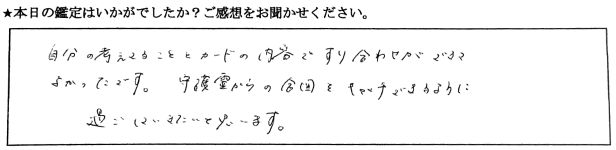 ★本日の鑑定はいかがでしたか?ご感想をお聞かせください。
自分の考えてることとカードの内容ですり合わせができて
よかったです。 守護霊からの合図をキャッチできるように
過ごしていきたいと思います。